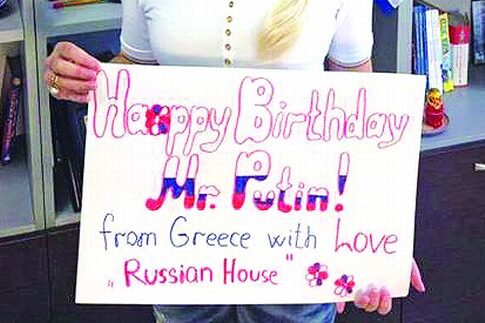 Happy Birthday
Mr. Putin!
from Greece with Love
„Russian House"